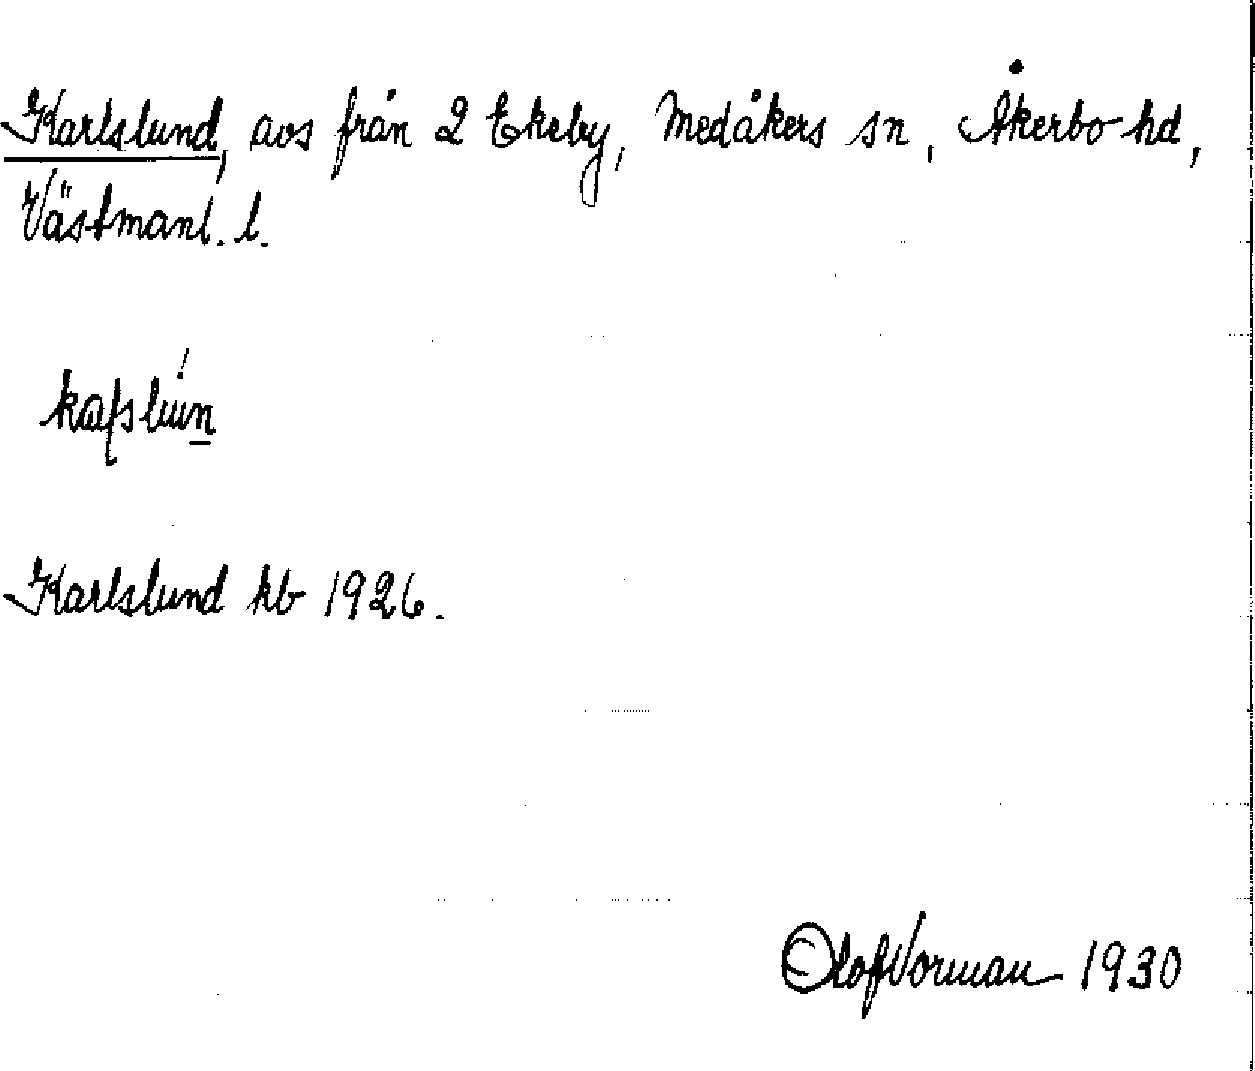 Karlslund, avs från 2 Ekeby, Medåkers sn, Åkerbo hd,
Västmanl. l.
Karlslund kb 1926.
Olof Vorman 1930